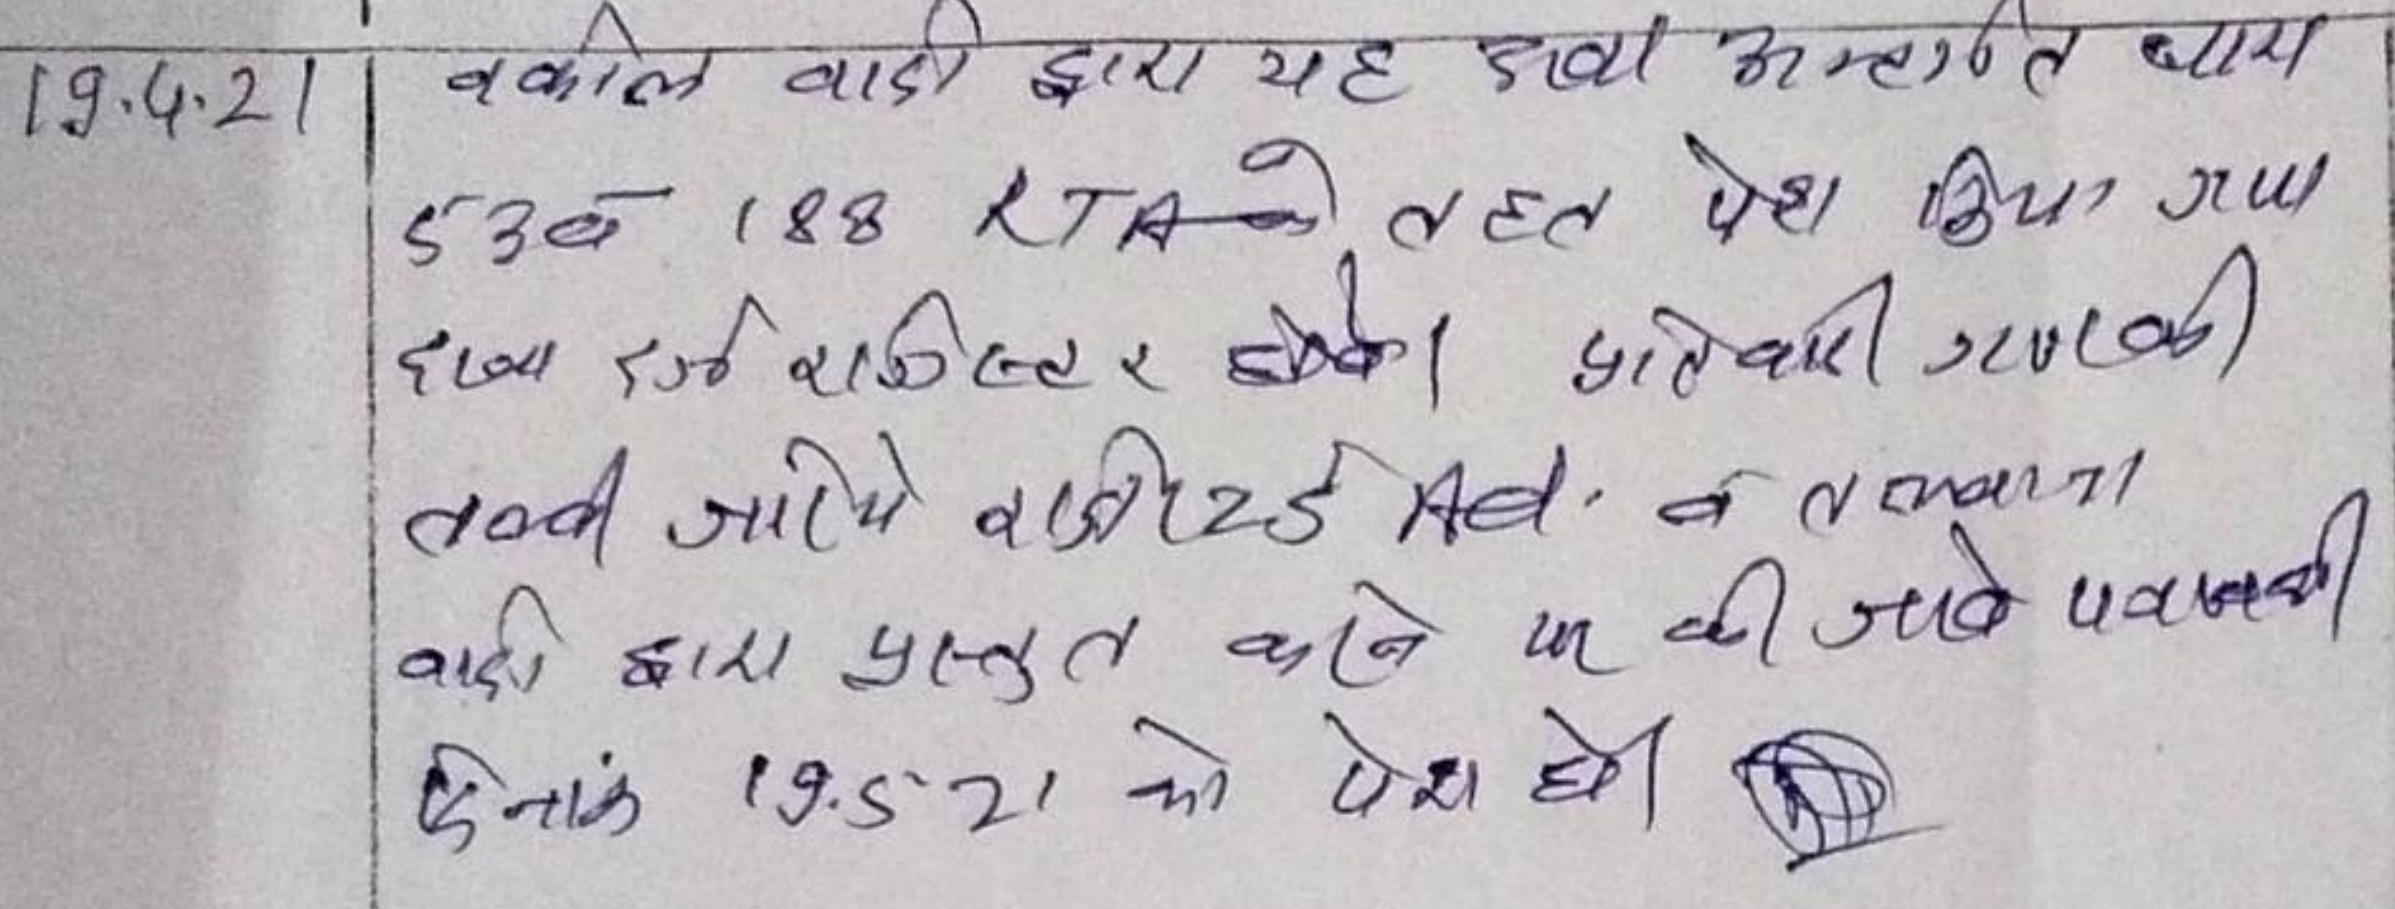 19.4.21 वकील वादी द्वारा यह दावा अन्तर्गत धारा
53 व 188 RTA के तहत पेश किया गया
दावा दर्ज रजिस्टर होवे। प्रतिवादी गण की
तलबी जरिये रजिस्टर्ड AD. व तलवाना
वादी द्वारा प्रस्तुत करने पर की जावे पत्रावली
दिनांक 19.5.21 को पेश हो।